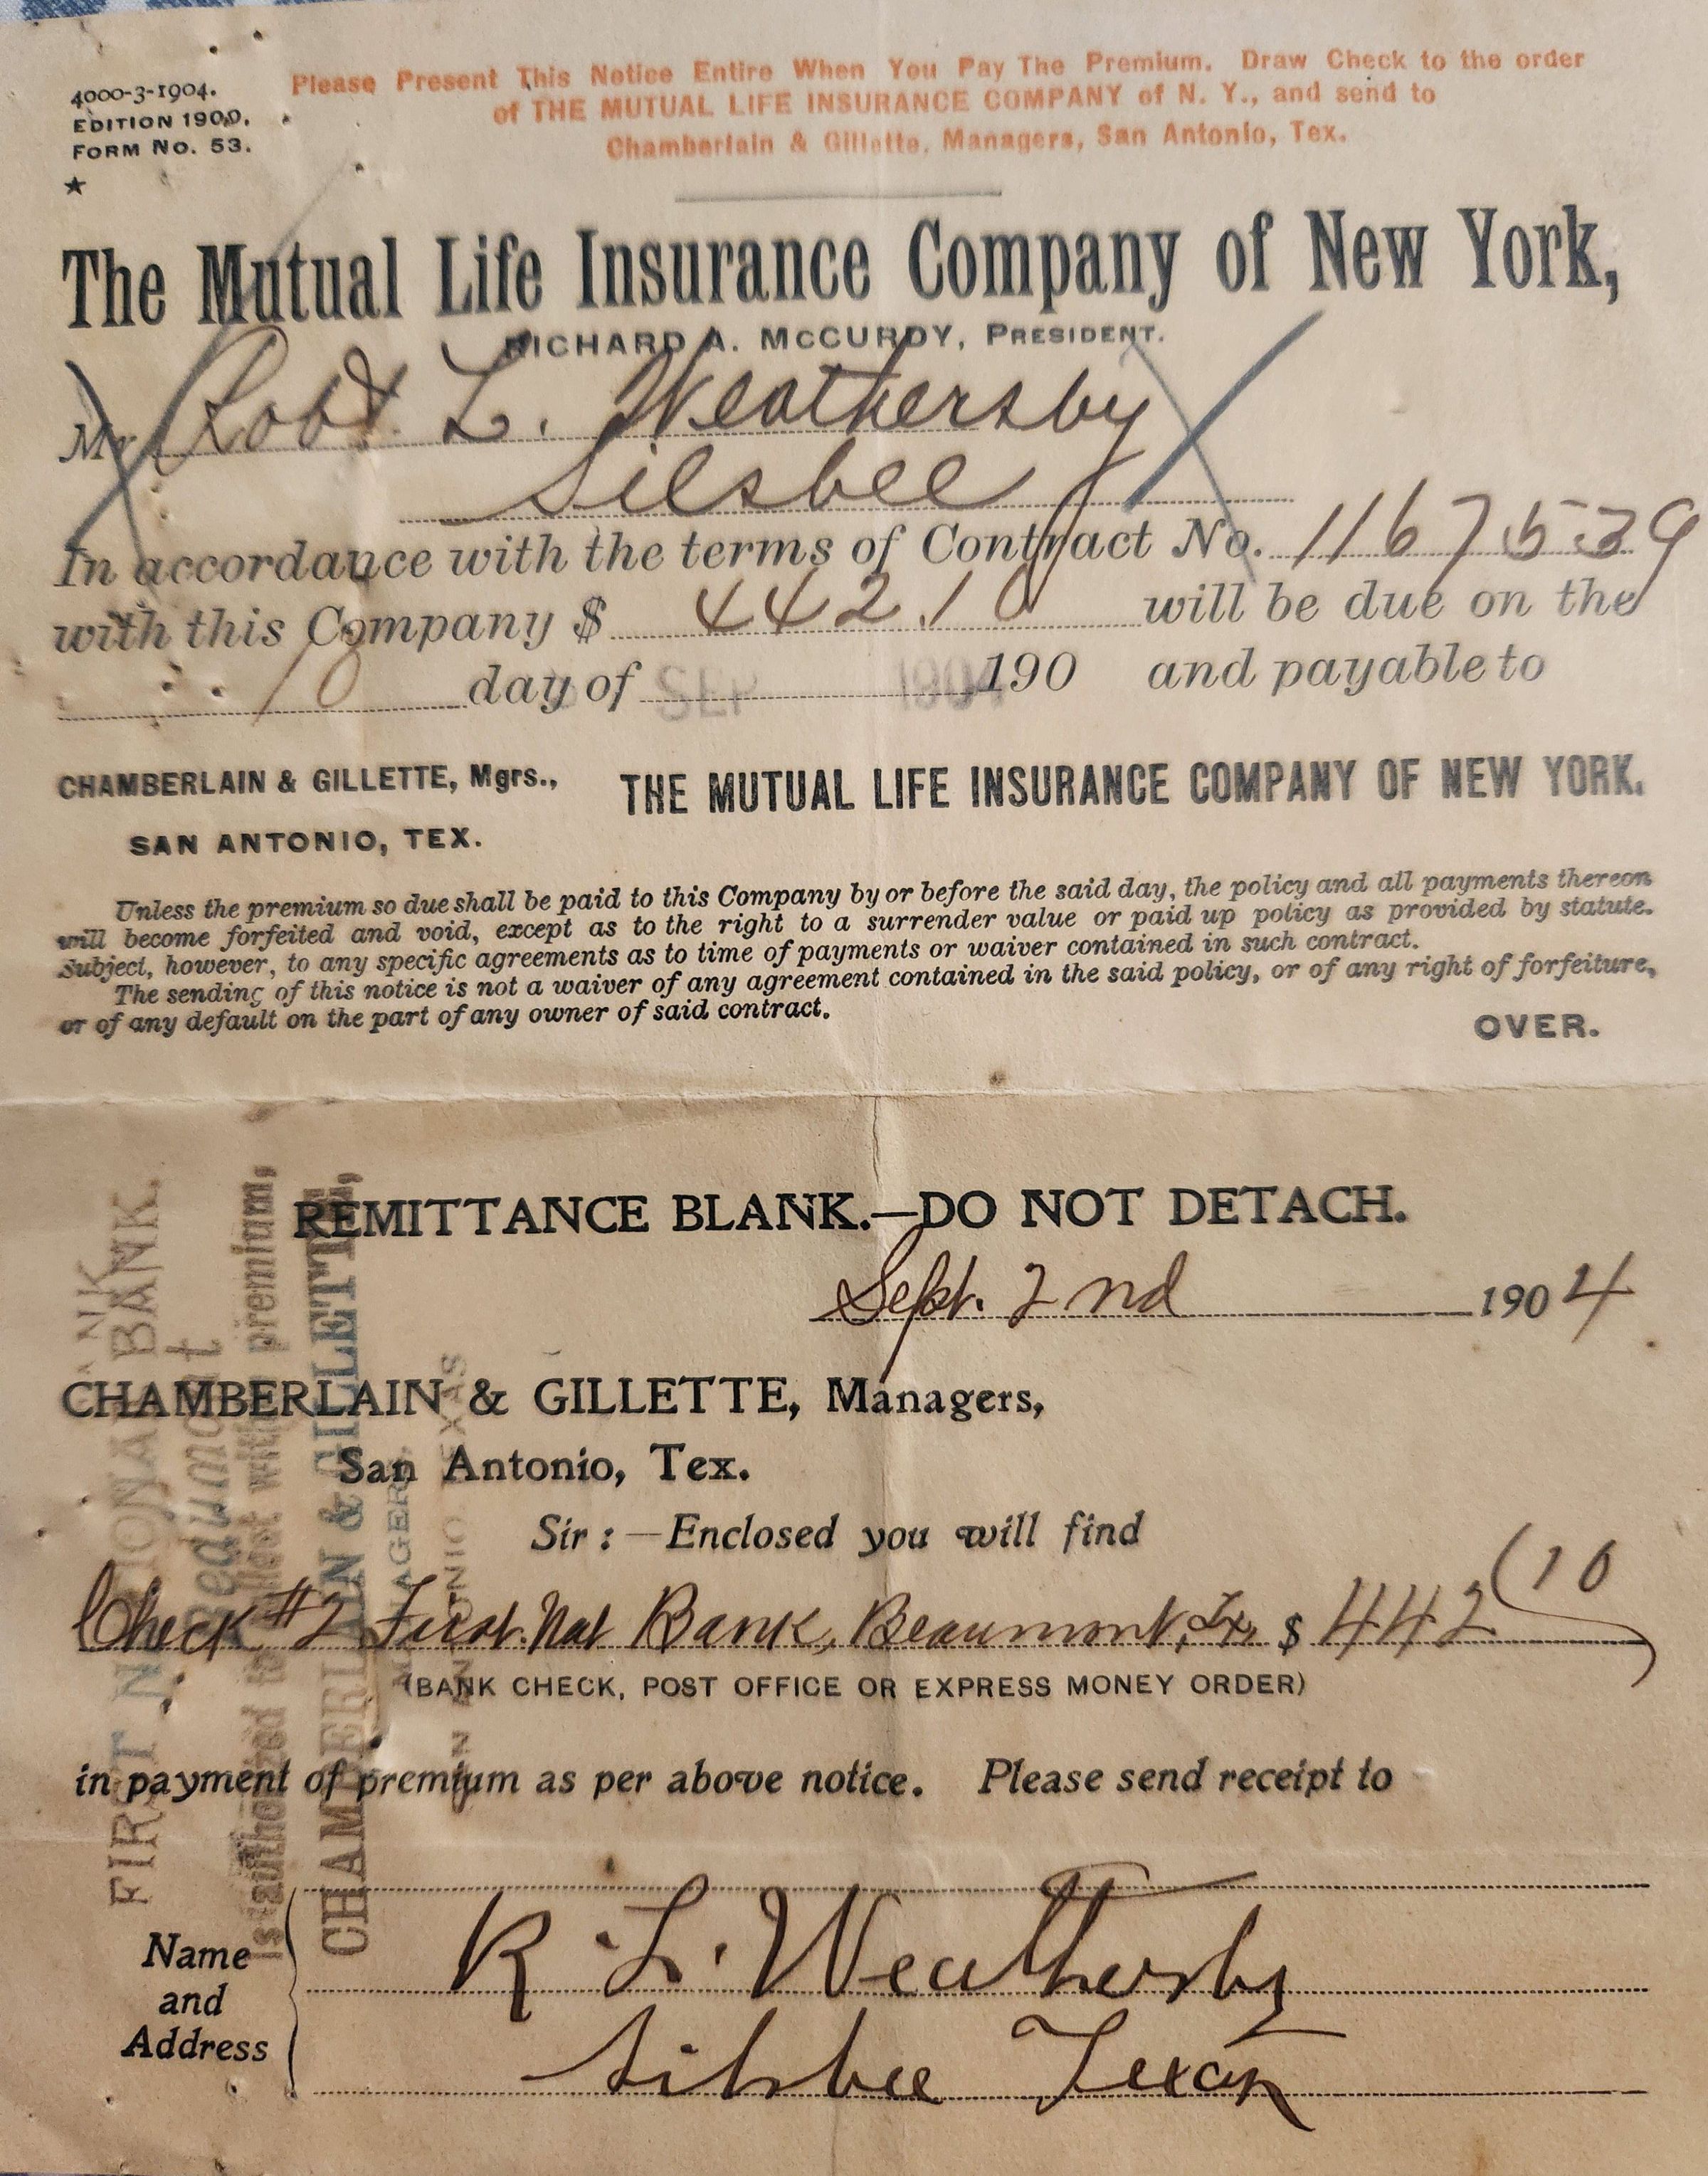 4000-3-1904.
EDITION 1900.
FORM No. 53.
★
Please Present This Notice Entire When You Pay The Premium. Draw Check to the order
of THE MUTUAL LIFE INSURANCE COMPANY of N. Y., and send to
Chamberlain & Gillette, Managers, San Antonio, Tex.
The Mutual Life Insurance Company of New York,
RICHARD A. MCCURDY, PRESIDENT.
Mr Robt L. Weathersby
Silsbee
In accordance with the terms of Contract No. 1167539
with this Company $ 442.10 will be due on the
10 day of SEP 1904 190 and payable to
CHAMBERLAIN & GILLETTE, Mgrs.,
SAN ANTONIO, TEX.
THE MUTUAL LIFE INSURANCE COMPANY OF NEW YORK.
Unless the premium so due shall be paid to this Company by or before the said day, the policy and all payments thereon
will become forfeited and void, except as to the right to a surrender value or paid up policy as provided by statute.
Subject, however, to any specific agreements as to time of payments or waiver contained in such contract.
The sending of this notice is not a waiver of any agreement contained in the said policy, or of any right of forfeiture,
or of any default on the part of any owner of said contract.
OVER.
REMITTANCE BLANK.—DO NOT DETACH.
Sept. 2nd 1904
CHAMBERLAIN & GILLETTE, Managers,
San Antonio, Tex.
Sir:—Enclosed you will find
Check #2 First Nat Bank, Beaumont, Tx, $ 442 10
(BANK CHECK, POST OFFICE OR EXPRESS MONEY ORDER)
in payment of premium as per above notice. Please send receipt to
Name
and
Address
R. L. Weathersby
Silsbee Texas
FIRST NATIONAL BANK.
Beaumont
is authorized to premium,
CHAMBERLAIN & GILLETTE,
MANAGERS,
SAN ANTONIO TEXAS